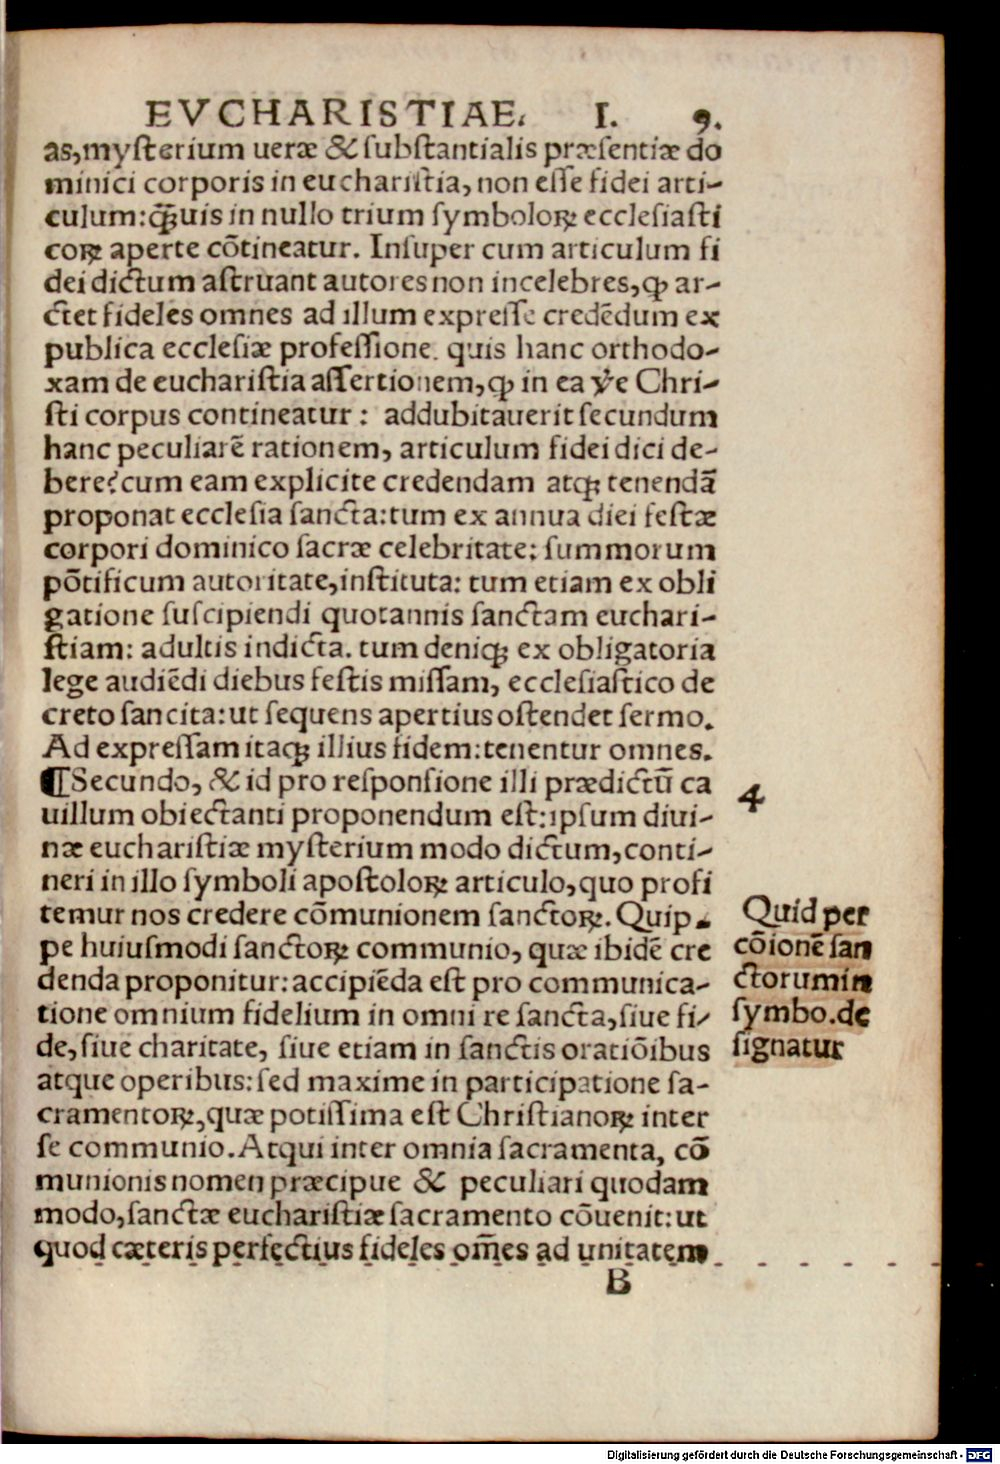 EVCHARISTIAE. I. 9.
as,myſterium ueræ & ſubſtantialis præſentiæ do
minici corporis in euchariſtia, non eſſe fidei arti-
culum:ꝙ̃uis in nullo trium ſymboloꝝ eccleſiaſti
coꝝ aperte cõtineatur. Inſuper cum articulum fi
dei dictum aſtruant autores non incelebres,ꝙ ar-
ctet fideles omnes ad illum expreſſe credẽdum ex
publica eccleſiæ profeſſione. quis hanc orthodo-
xam de euchariſtia aſſertionem,ꝙ in ea ẙe Chri-
ſti corpus contineatur : addubitauerit ſecundum
hanc peculiarẽ rationem, articulum fidei dici de-
bere?cum eam explicite credendam atqꝫ tenendã
proponat eccleſia ſancta:tum ex annua diei feſtæ
corpori dominico ſacræ celebritate: ſummorum
põtificum autoritate,inſtituta: tum etiam ex obli
gatione ſuſcipiendi quotannis ſanctam euchari-
ſtiam: adultis indicta. tum deniqꝫ ex obligatoria
lege audiẽdi diebus feſtis miſſam, eccleſiaſtico de
creto ſancita:ut ſequens apertius oſtendet ſermo.
Ad expreſſam itaqꝫ illius fidem:tenentur omnes.
¶Secundo, & id pro reſponſione illi prædictũ ca
uillum obiectanti proponendum eſt:ipſum diui-
næ euchariſtiæ myſterium modo dictum,conti-
neri in illo ſymboli apoſtoloꝝ articulo,quo profi
temur nos credere cõmunionem ſanctoꝝ. Quip-
pe huiuſmodi ſanctoꝝ communio, quæ ibidẽ cre
denda proponitur:accipiẽda eſt pro communica-
tione omnium fidelium in omni re ſancta,ſiue fi-
de,ſiue charitate, ſiue etiam in ſanctis oratiõibus
atque operibus:ſed maxime in participatione ſa-
cramentoꝝ,quæ potiſſima eſt Chriſtianoꝝ inter
ſe communio. Atqui inter omnia ſacramenta, cõ
munionis nomen præcipue & peculiari quodam
modo,ſanctæ euchariſtiæ ſacramento cõuenit:ut
quod cæteris perfectius fideles om̃es ad unitatem
B
4
Quid per
cõionẽ ſan
ctorum in
ſymbo.de
ſignatur
Digitalisierung gefördert durch die Deutsche Forschungsgemeinschaft - DFG